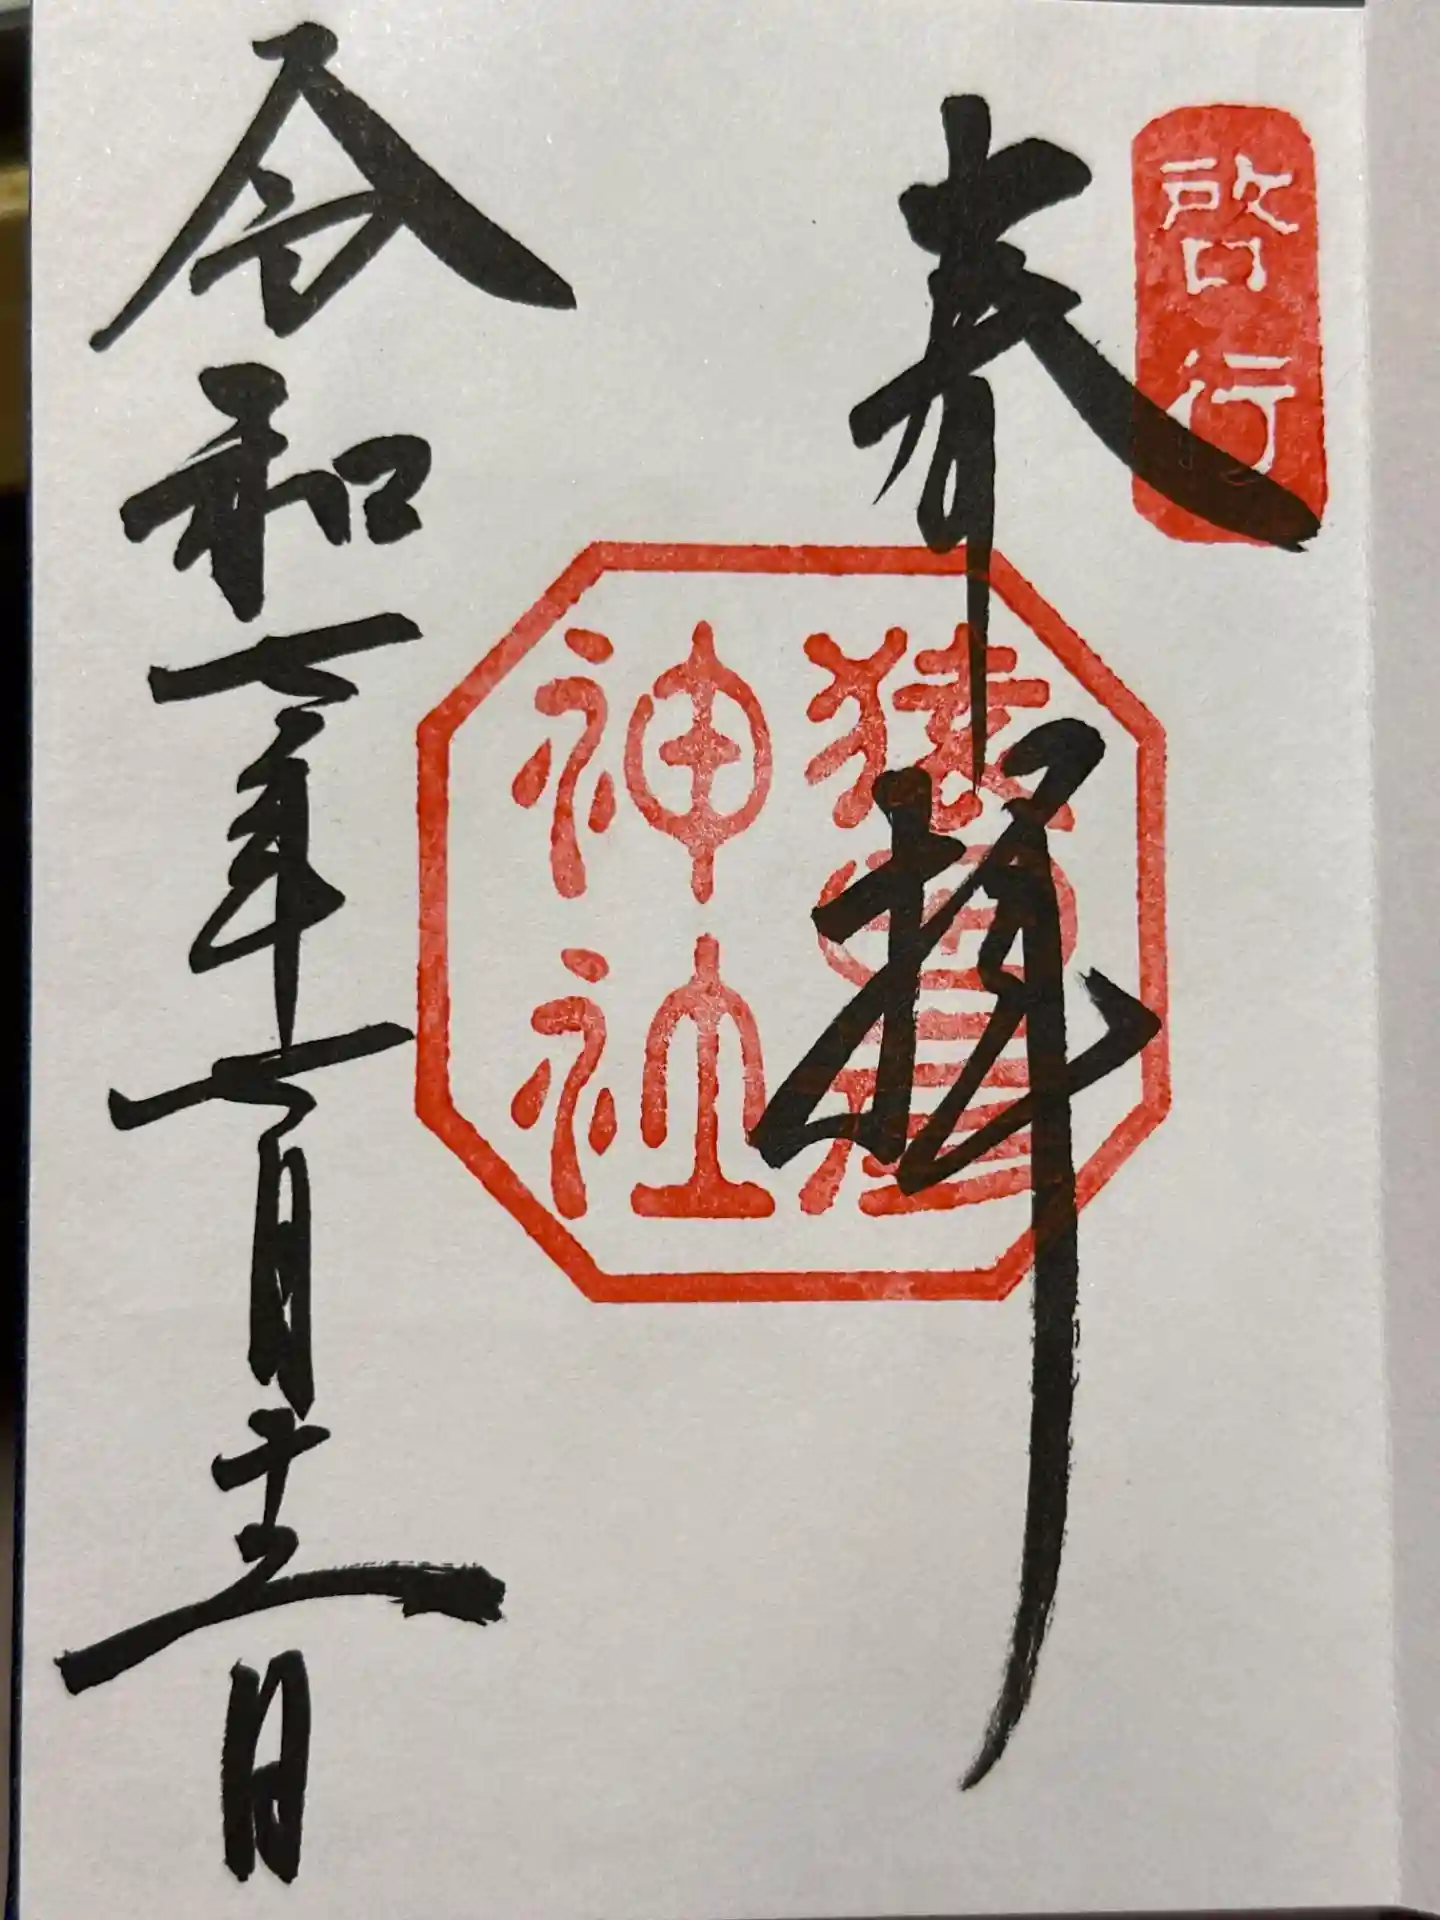 啓行
奉拝
猿田彦
神社
令和七年七月十二日